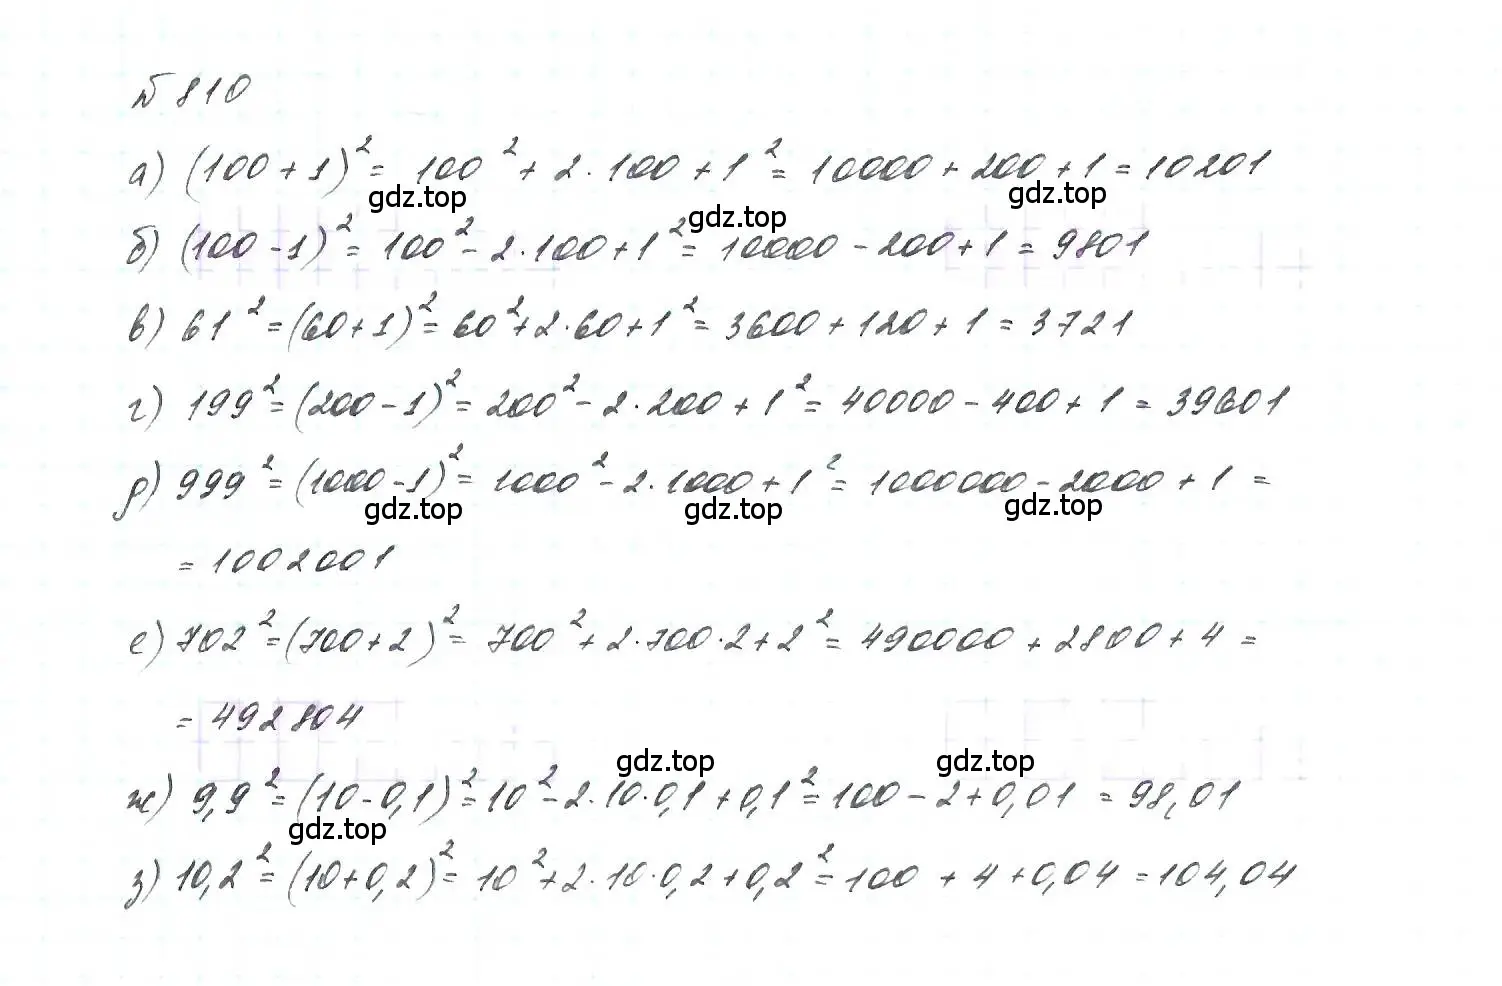 № 810
а) (100 + 1)² = 100² + 2 · 100 + 1² = 10000 + 200 + 1 = 10201
gdz.top gdz.top gdz.top
б) (100 - 1)² = 100² - 2 · 100 + 1² = 10000 - 200 + 1 = 9801
в) 61² = (60 + 1)² = 60² + 2 · 60 + 1² = 3600 + 120 + 1 = 3721
г) 199² = (200 - 1)² = 200² - 2 · 200 + 1² = 40000 - 400 + 1 = 39601
д) 999² = (1000 - 1)² = 1000² - 2 · 1000 + 1² = 1000000 - 2000 + 1 =
gdz.top gdz.top gdz.top
= 1002001
е) 702² = (700 + 2)² = 700² + 2 · 700 · 2 + 2² = 490000 + 2800 + 4 =
= 492804
gdz.top gdz.top
ж) 9,9² = (10 - 0,1)² = 10² - 2 · 10 · 0,1 + 0,1² = 100 - 2 + 0,01 = 98,01
gdz.top
з) 10,2² = (10 + 0,2)² = 10² + 2 · 10 · 0,2 + 0,2² = 100 + 4 + 0,04 = 104,04